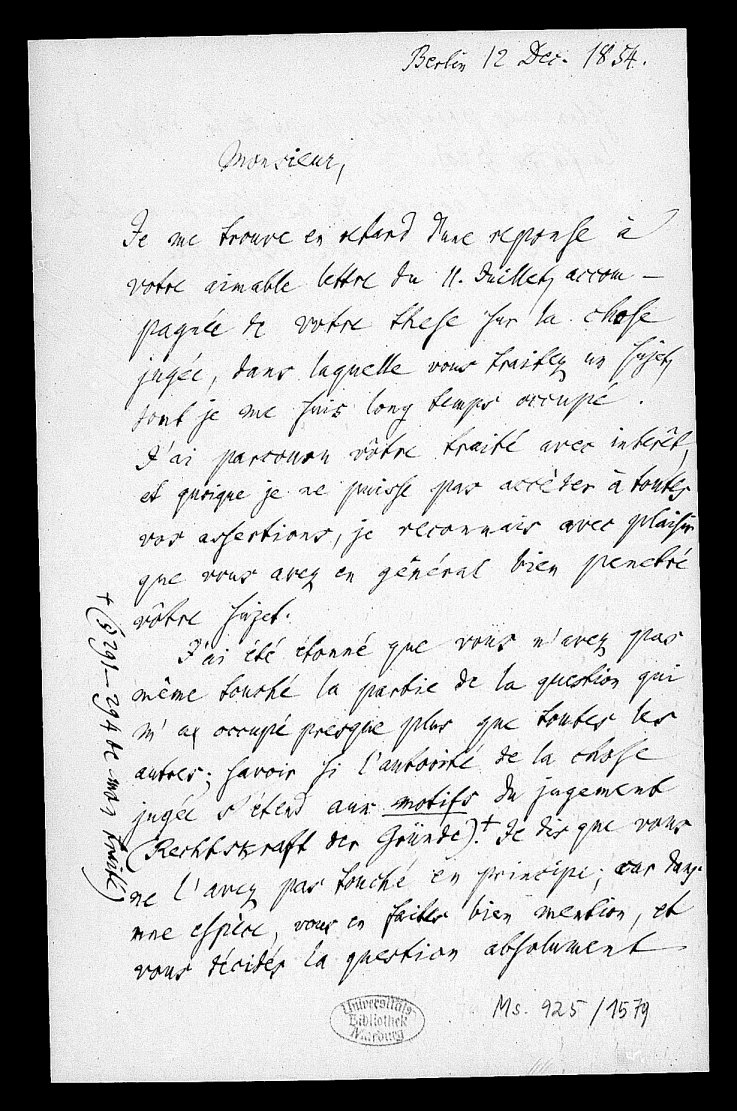 Berlin 12 Dec. 1854.
Monsieur,
Je me trouve en retard d'une reponse à
votre aimable lettre du 11. Juillet, accom-
pagnée de votre these sur la chose
jugée, dans laquelle vous traitez un sujet,
dont je me suis long temps occupé.
J'ai parcouru vôtre traité avec interêt,
et quoique je ne puisse pas accéder à toutes
vos assertions, je reconnais avec plaisir
que vous avez en général bien penetré
vôtre sujet.
J'ai été étonné que vous n'avez pas
même touché la partie de la question qui
m'a occupé presque plus que toutes les
autres; savoir si l'autorité de la chose
jugée s'étend aux motifs du jugement
(Rechtskraft der Gründe).+ Je dis que vous
ne l'avez pas touché en principe; car dans
une espèce, vous en faites bien mention, et
vous décidés la question absolument
+ (§ 291-294 de mon traité)
Universitäts-
Bibliothek
Marburg
Ms. 925/1579